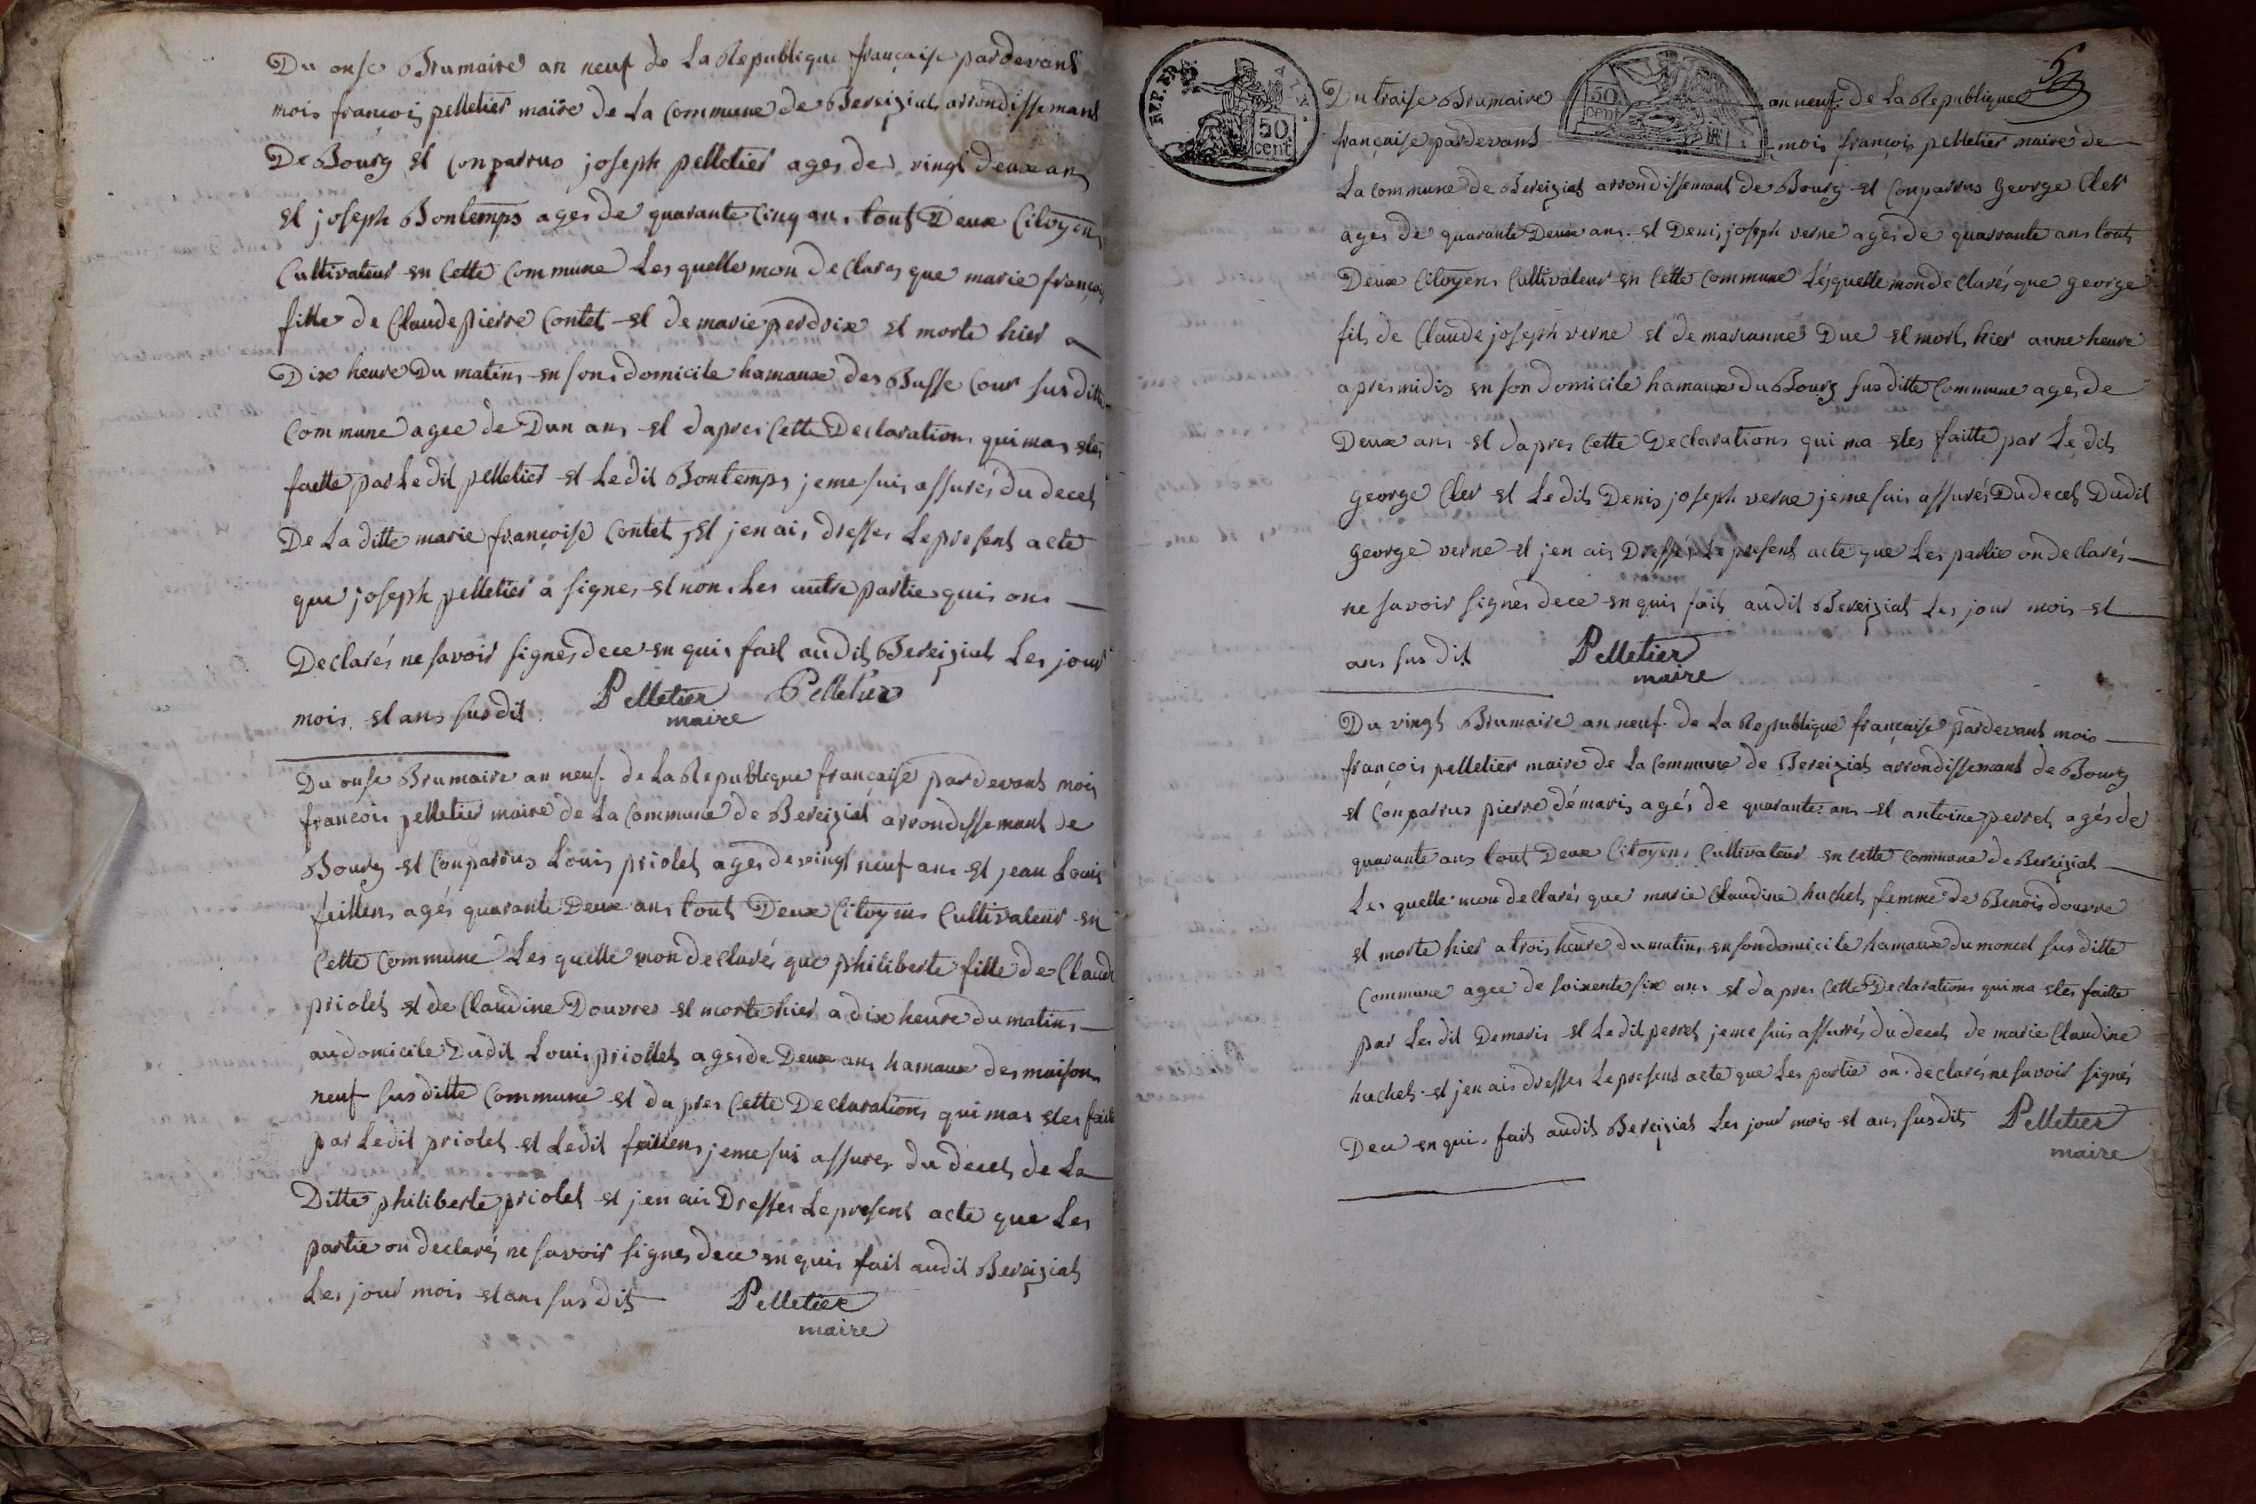 Du onse Brumaire an neuf de La Republique française pardevant
mois françois pelletier maire de La Commune de Bereiziat arrondissemant
De Bourg et Conparrus joseph pelletier ages de vingt deux ans
et joseph Bontemps ages de quarante Cinq ans tout Deux Citoyens
Cultivateur en Cette Commune Les quelle mon declares que marie françois
fille de Claude pierre Contet et de marie perdrix et morte hier a
Dix heure Du matins en sons domicile hamaux des Basse Cour sus ditte
Commune agee de Dun ans et dapres Cette Declarations qui mas etes
faette par Ledit pelletier et Ledit Bontemps jeme suis assurés du decet
De La ditte marie françoise Contet et jenais dresses Lepresent acte
que joseph pelletier a signes et nons Les autre parties quis ons
Declarés ne savoir signés dece en quis fait audit Bereiziat Les jour
mois et ans susdit Pelletier Pelletier
maire
Du onse Brumaire an neuf de La Republique française pardevant mois
françois pelletier maire de La Commune de Bereiziat arrondissemant de
Bourg et Conparrus Louis priolet ages de vingt neuf ans et jean Louis
feillens agés quarante Deux ans tout Deux Citoyens Cultivateur en
Cette Commune Les quelle mon declarés que philiberte fille de Claude
priolet et de Claudine Douvres et morte hier a dix heure du matins
au domicile Dudit Louis priollet ages de Deux ans hamaux des maisons
neuf sus ditte Commune et dapres Cette Declarations qui mas etes faite
par Ledit priolet et Ledit feillens jeme suis assures du decet de La
Ditte philiberte priolet et jenais Dresses Lepresent acte que Les
partie on declarés ne savoir signes dece en quis fait audit Bereiziat
Les jour mois et ans susdit Pelletier
maire
REP. FRA. 50 cent. 50 cent 52
Du traise Brumaire an neuf de La Republique
française pardevant mois françois pelletier maire de
La commune de Bereiziat arrondissemant de Bourg et Conparrus George Cler
ages de quarante Deux ans et Denis joseph verne ages de quarrante ans tout
Deux Citoyens Cultivateur en Cette Commune Lesquelle mon declarés que george
fils de Claude joseph verne et de marianne Duc et mort hier a une heure
apres midis en son domicile hamaux du Bourg sus ditte Commune ages de
Deux ans et dapres Cette Declarations qui ma etes faitte par Ledit
george Cler et Ledit Denis joseph verne jeme suis assurés Du decet Dudit
george verne et jen ais Dressés Le present acte que Les partie on declarés
ne savoir signés dece en quis fait audit Bereiziat Les jour mois et
ans susdit Pelletier
maire
Du vingt Brumaire an neuf de La Republique française pardevant mois
françois pelletier maire de La Commune de Bereiziat arrondissemant de Bourg
et Conparrus pierre démaris agés de quarante ans et antoine perret agés de
quarante ans tout Deux Citoyens Cultivateur en Cette commune de Bereiziat
Les quelle mon declarés que marie Claudine huchet femme de Benois douvre
et morte hier a trois heure du matins en son domicile hamaux du moncel sus ditte
Commune agee de soixente six ans et dapres Cette Declarations qui ma etes faitte
par Les dit Demaris et Ledit perret jeme suis assurrés du decet de marie Claudine
huchet et jenais dresses Lepresent acte que Les partie on declarés ne savoir signés
Dece en quis fait audit Bereiziat Les jour mois et ans susdit Pelletier
maire